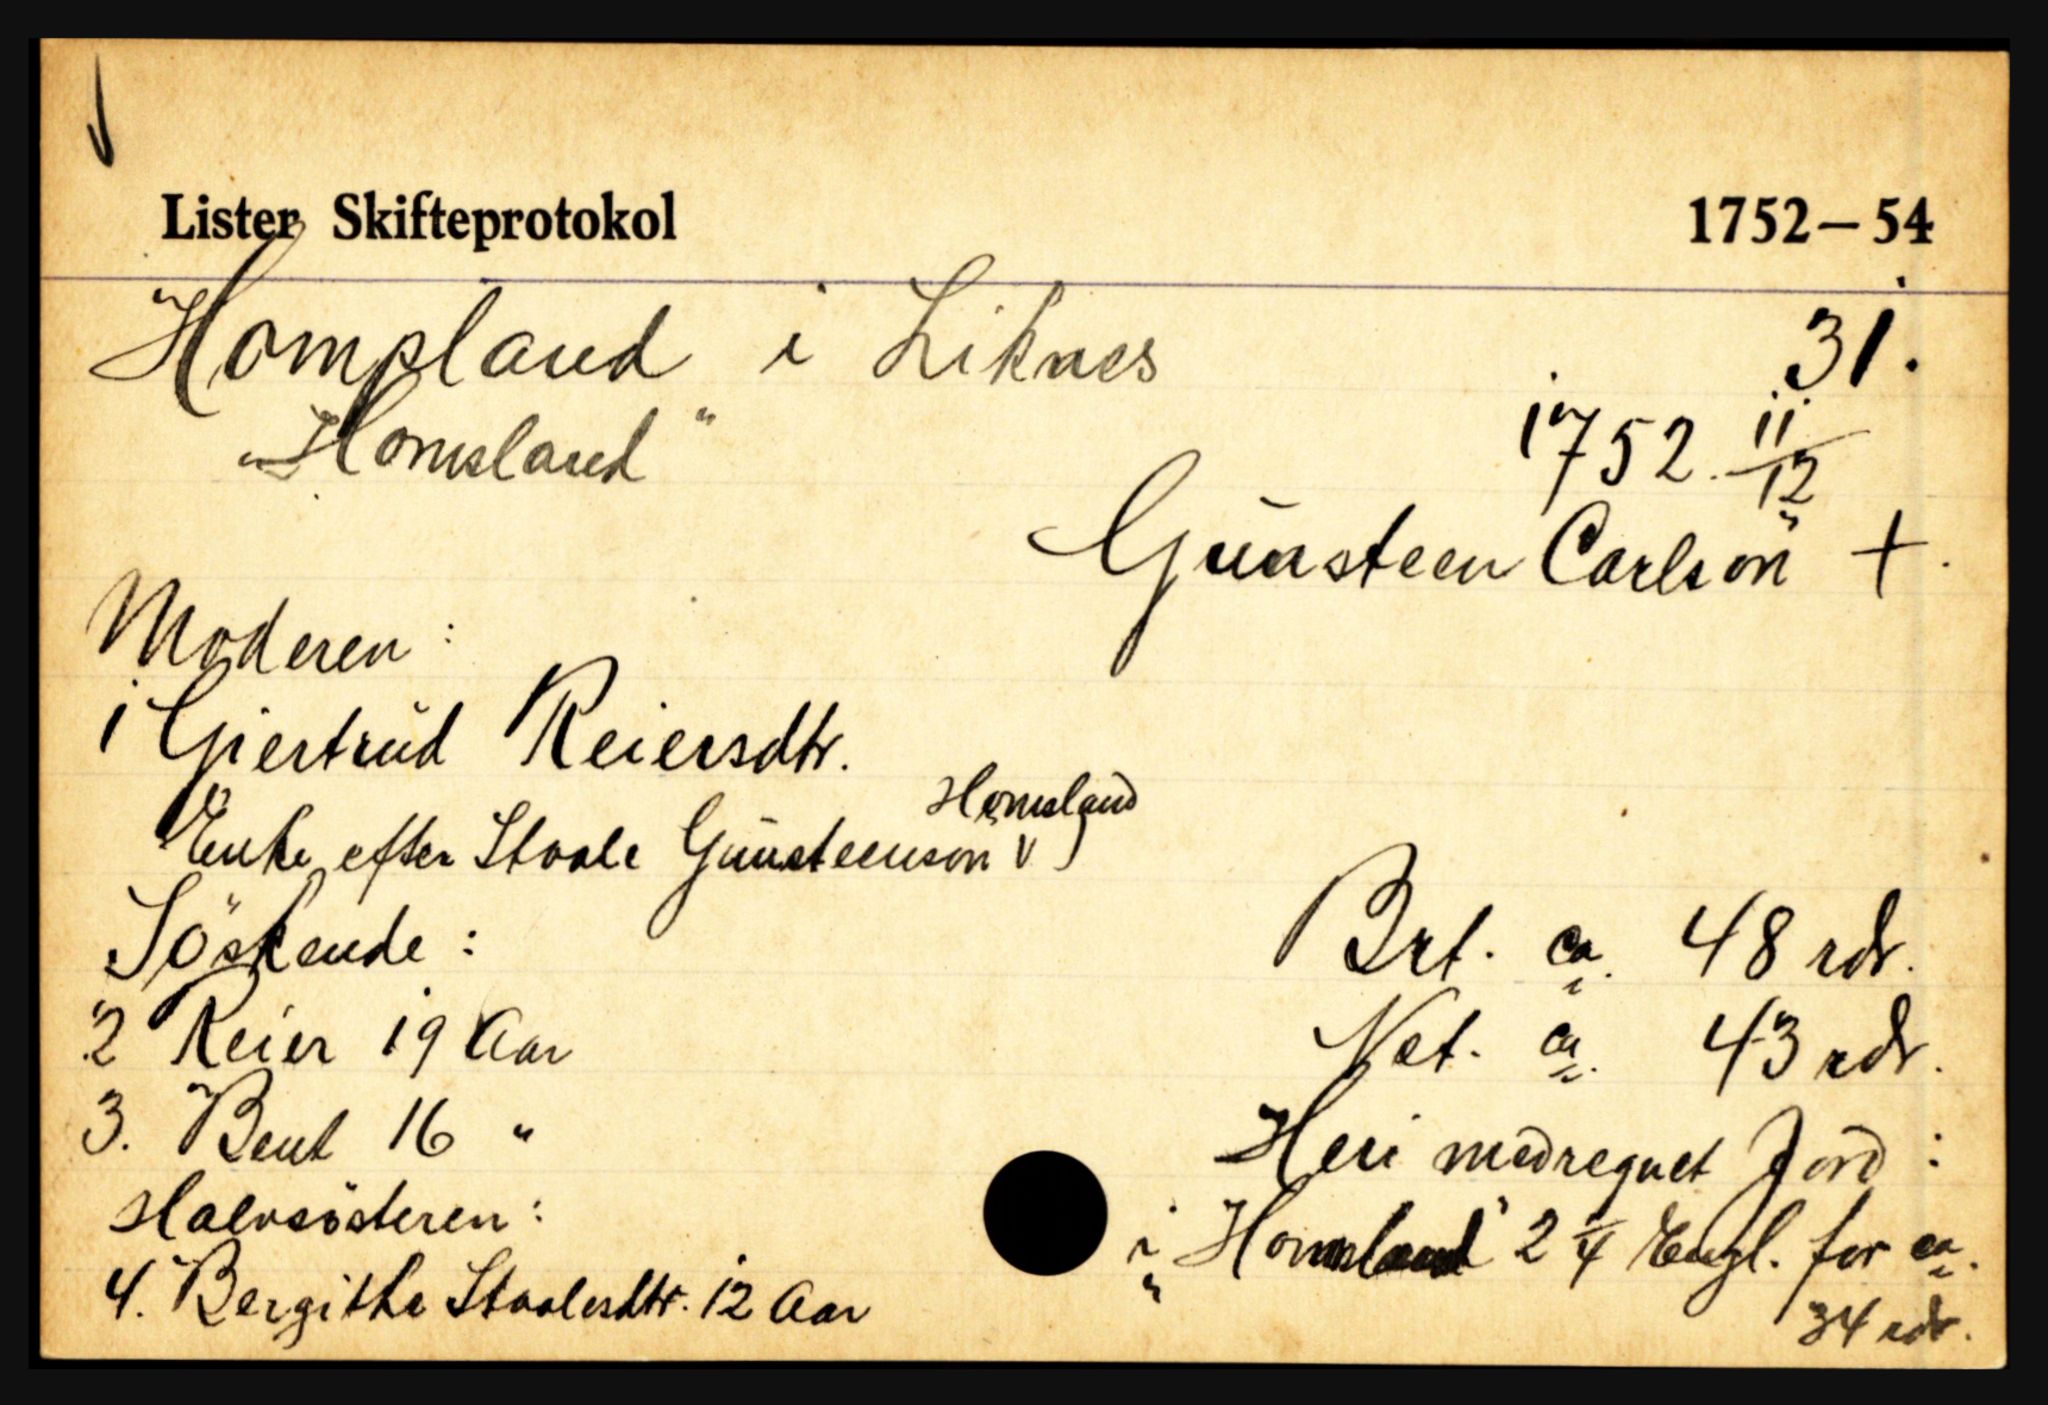 Lister Skifteprotokol 1752–54
Hompland i Liknes 31.
"Homsland" 1752 11/12
Gunsteen Carlson +.
Moderen:
1 Giertrud Reiersdtr.
Enke efter Staale Gunsteenson v Homsland
Söskende:
2 Reier 19 Aar
3. Bent 16 "
Halvsösteren:
4. Bergithe Staalesdtr. 12 Aar
Brt. ca. 48 rdr.
Net. ca. 43 rdr.
Heri medregnet Jord:
i "Homsland" 2 1/4 Engl. for ca.
34 rdr.